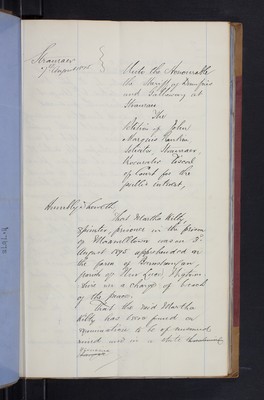 Stranraer
7th August 1895
Unto the Honourable
the Sheriff of Dumfries
and Galloway at
Stranraer
The
Petition of John
Rankin
Solicitor Stranraer,
Procurator Fiscal
of Court for the
public interest,
Humbly Sheweth,
That Martha Kilty,
Spinster, prisoner in the prison
of Maxwelltown was on 3rd
August 1895 apprehended in
the farm of
parish of New Luce Wigtown
shire on a charge of breach
of the peace.
That the said Martha
Kilty has been found on
examination to be of unsound
mind and in a state